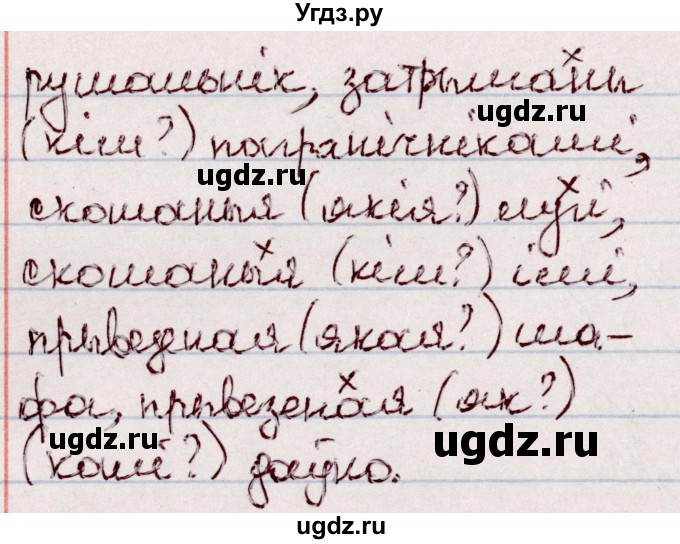 Угдз.ру
рушальнік, затрыманы
ugdz.ru
(кім?) пагранічнікамі,
ugdz.ru
скошаныя (якія?) лугі,
скошаныя (кім?) імі,
прывезеная (якая?) ша-
фа, прывезеная (як?)
ugdz.ru
ugdz.ru
(калі?) даўно.
ugdz.ru